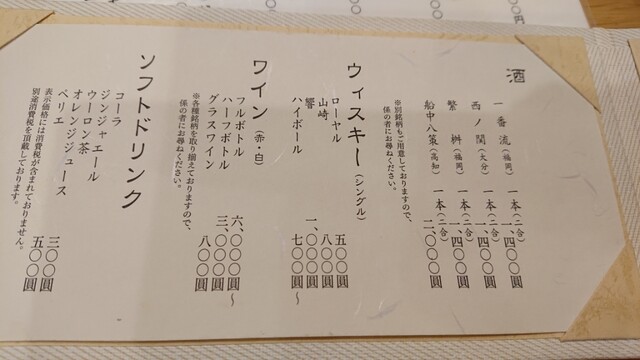 酒
一番流（福岡） 一本（二合） 一、四〇〇圓
西ノ関（大分） 一本（二合） 一、四〇〇圓
繁桝（福岡） 一本（二合） 一、四〇〇圓
船中八策（高知） 一本（二合） 二、〇〇〇圓
※別銘柄もご用意しておりますので、
係の者にお尋ねください。
ウィスキー（シングル）
ローヤル 五〇〇圓
山崎 八〇〇圓
響 一、〇〇〇圓
ハイボール 七〇〇圓〜
ワイン（赤・白）
フルボトル 六、〇〇〇圓〜
ハーフボトル 三、〇〇〇圓
グラスワイン 八〇〇圓
※各種銘柄を取り揃えておりますので、
係の者にお尋ねください。
ソフトドリンク
コーラ
ジンジャエール
ウーロン茶
オレンジジュース 三〇〇圓
ペリエ 五〇〇圓
表示価格には消費税が含まれておりません。
別途消費税を頂戴しております。